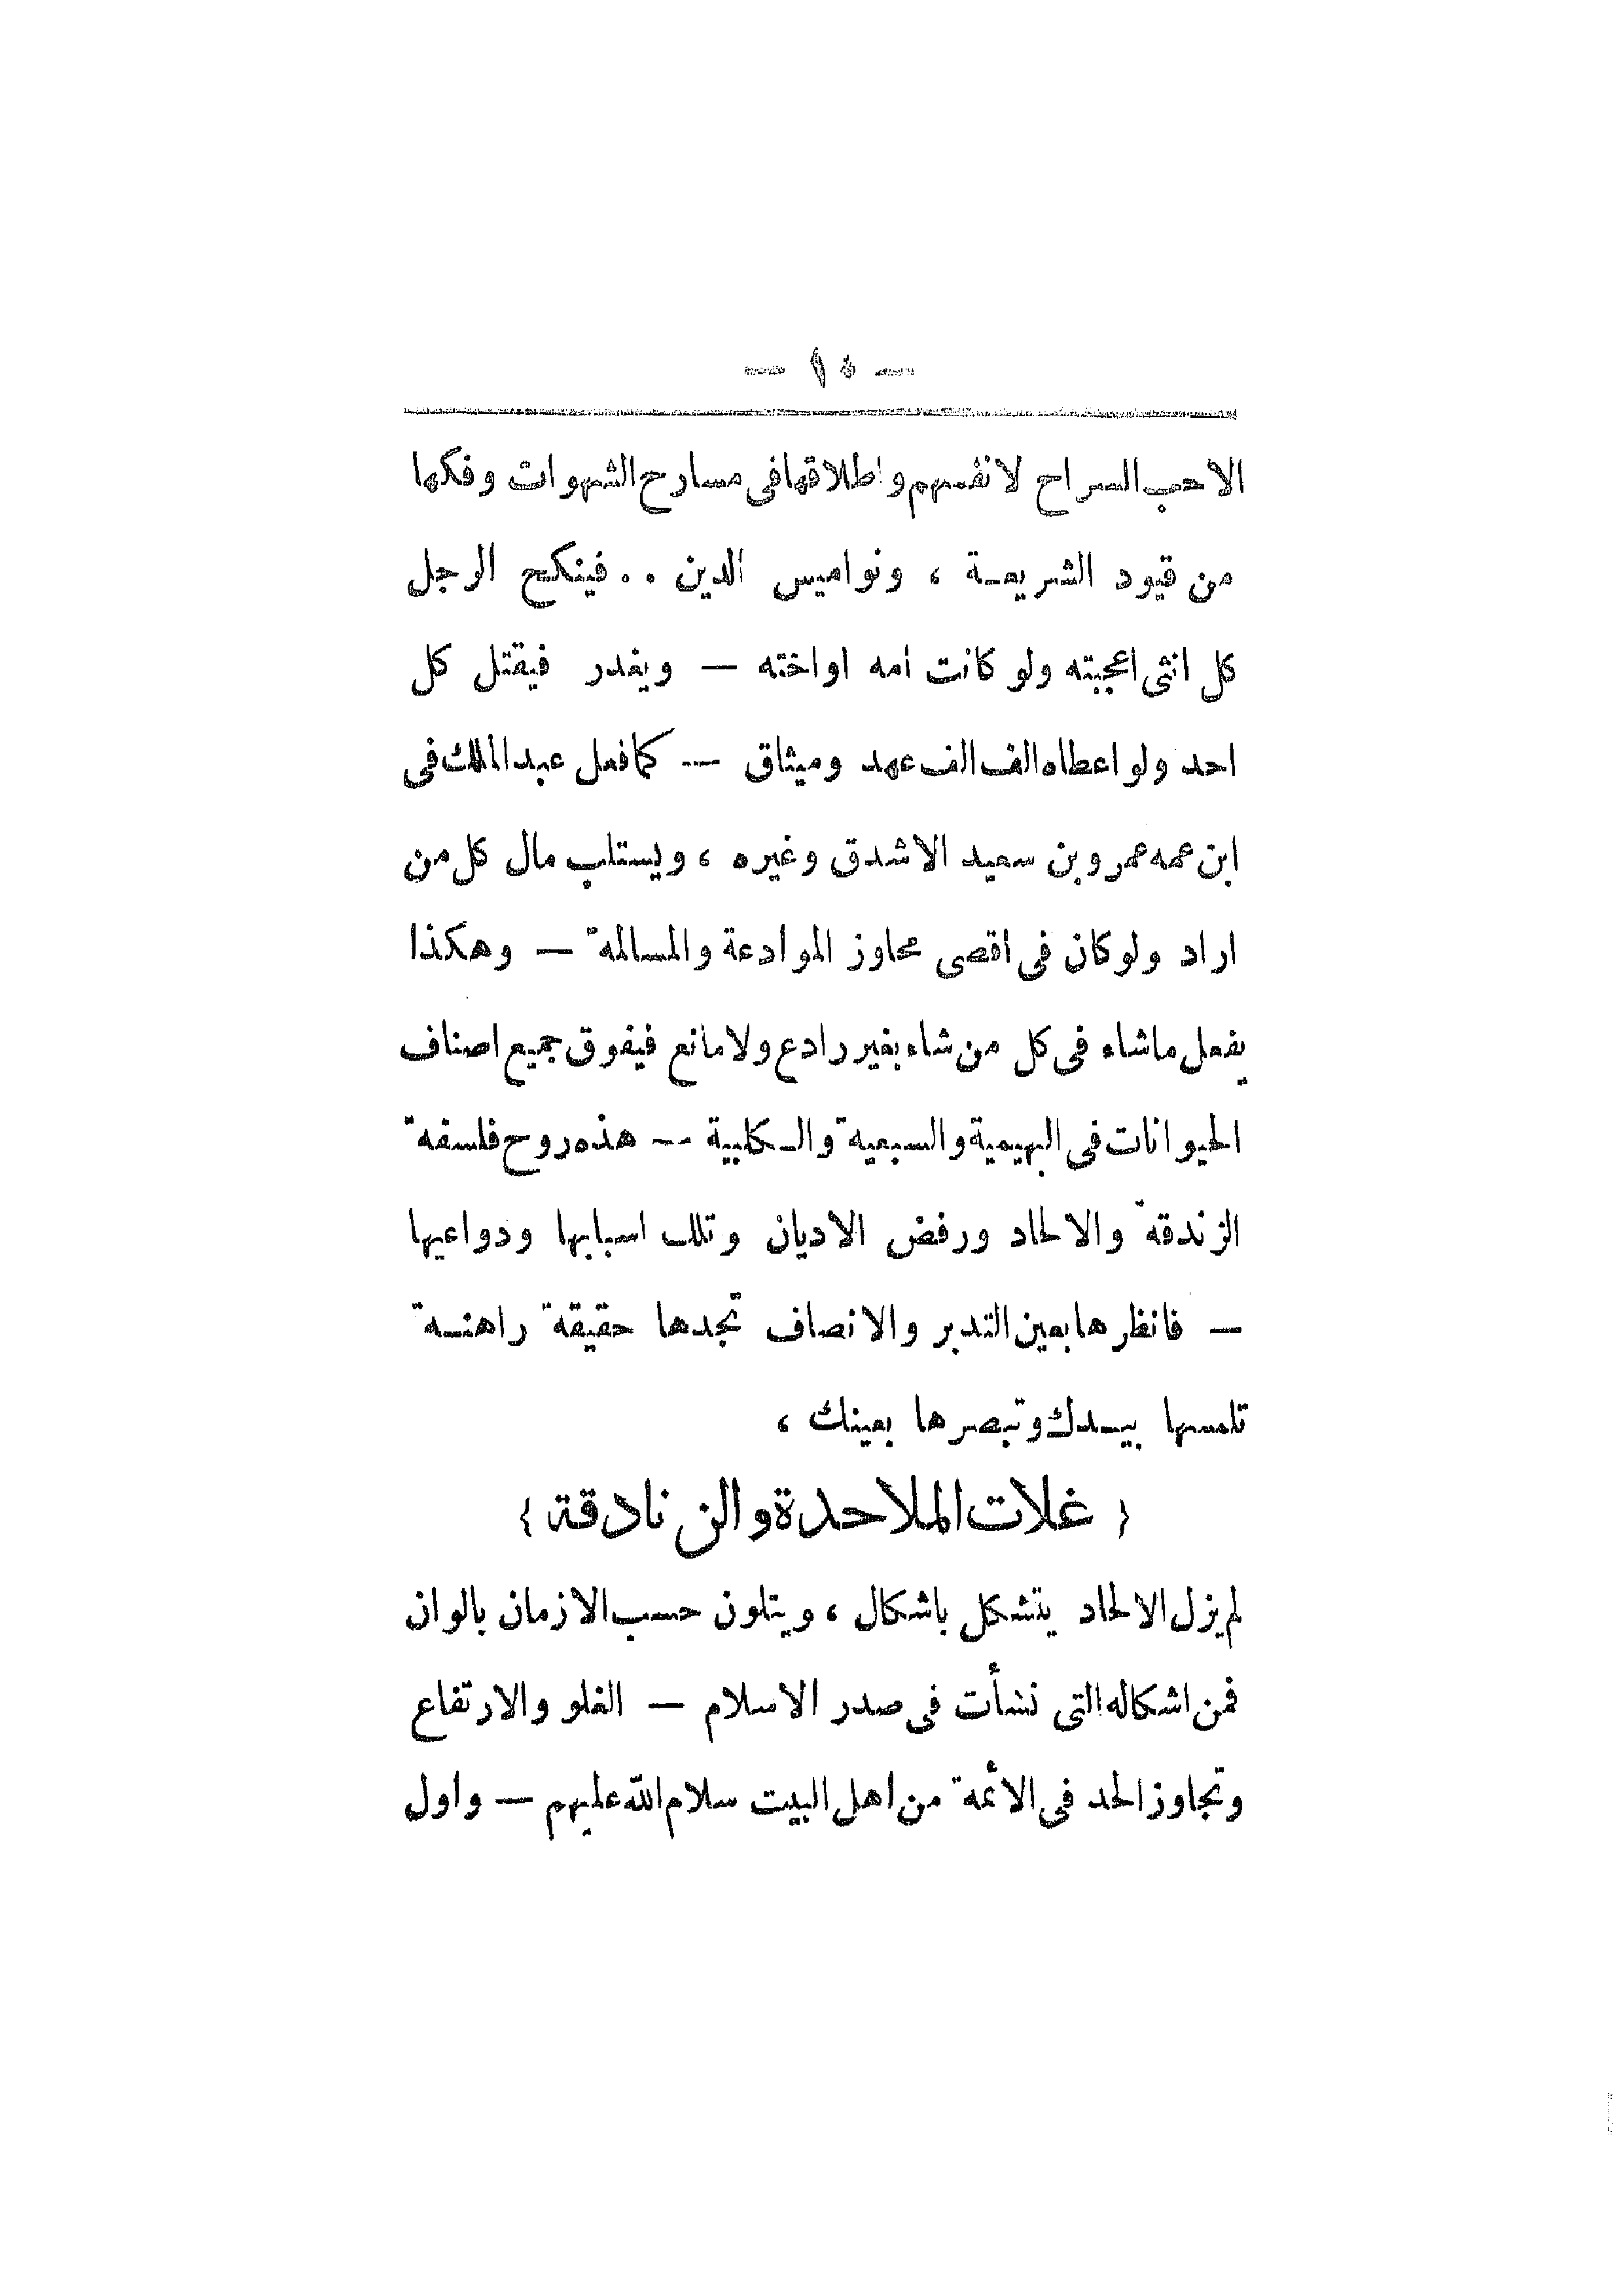 — ١٥ —
الاحب السراح لانفسهم واطلاقها فى مسارح الشهوات وفكها
من قيود الشريعـة ، ونواميس الدين . . فينكح الرجل
كل انثى اعجبته ولو كانت امه او اخته — ويغدر فيقتل كل
احد ولو اعطاه الف الف عهد وميثاق — كما فعل عبد الملك فى
ابن عمه عمر وبن سعيد الاشدق وغيره ، ويستلب مال كل من
اراد ولو كان فى أقصى محاوز الموادعة والمسالمة — وهكذا
يفعل ماشاء فى كل من شاء بغير رادع ولا مانع فيفوق جميع اصناف
الحيوانات فى البهيمية والسبعية والـكلبية -- هذه روح فلسفة
الزندقة والالحاد ورفض الاديان وتلك اسبابها ودواعيها
— فانظرها بعين التدبر والانصاف تجدها حقيقة راهنـة
تلمسها بيـدك وتبصرها بعينك ،
{ غلات الملاحدة والزنادقة }
لم يزل الالحاد يتشكل باشكال ، ويتلون حسب الازمان بالوان
فمن اشكاله التى نشأت فى صدر الاسلام — الغلو والارتفاع
وتجاوز الحد فى الأئمة من اهل البيت سلام الله عليهم — واول